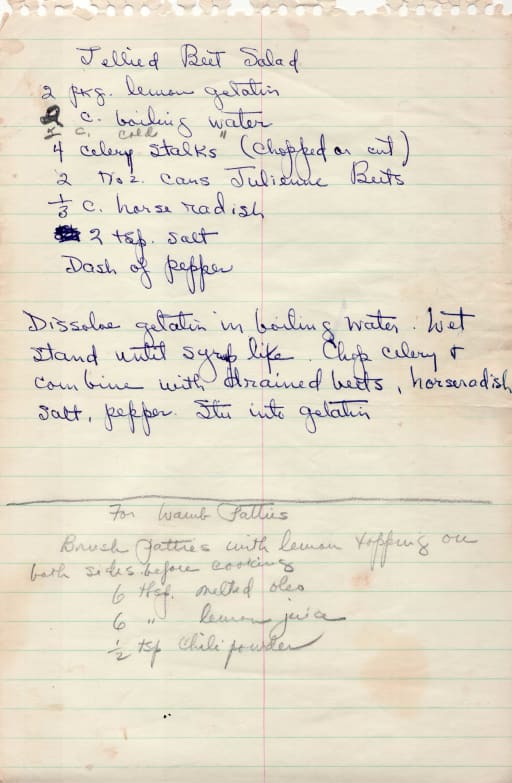 Jellied Beet Salad
2 pkg. lemon gelatin
2 c. boiling water
c. cold "
4 celery stalks (chopped or cut)
2 No 2. cans Julienne Beets
1/3 c. horse radish
2 tsp. salt
Dash of pepper
Dissolve gelatin in boiling water. Let
stand until syrup like. Chop celery &
combine with drained beets, horseradish
salt, pepper. Stir into gelatin
For Lamb Patties
Brush Patties with lemon topping on
both sides before cooking
6 tbsp. melted oleo
6 " lemon juice
1/2 tsp chili powder